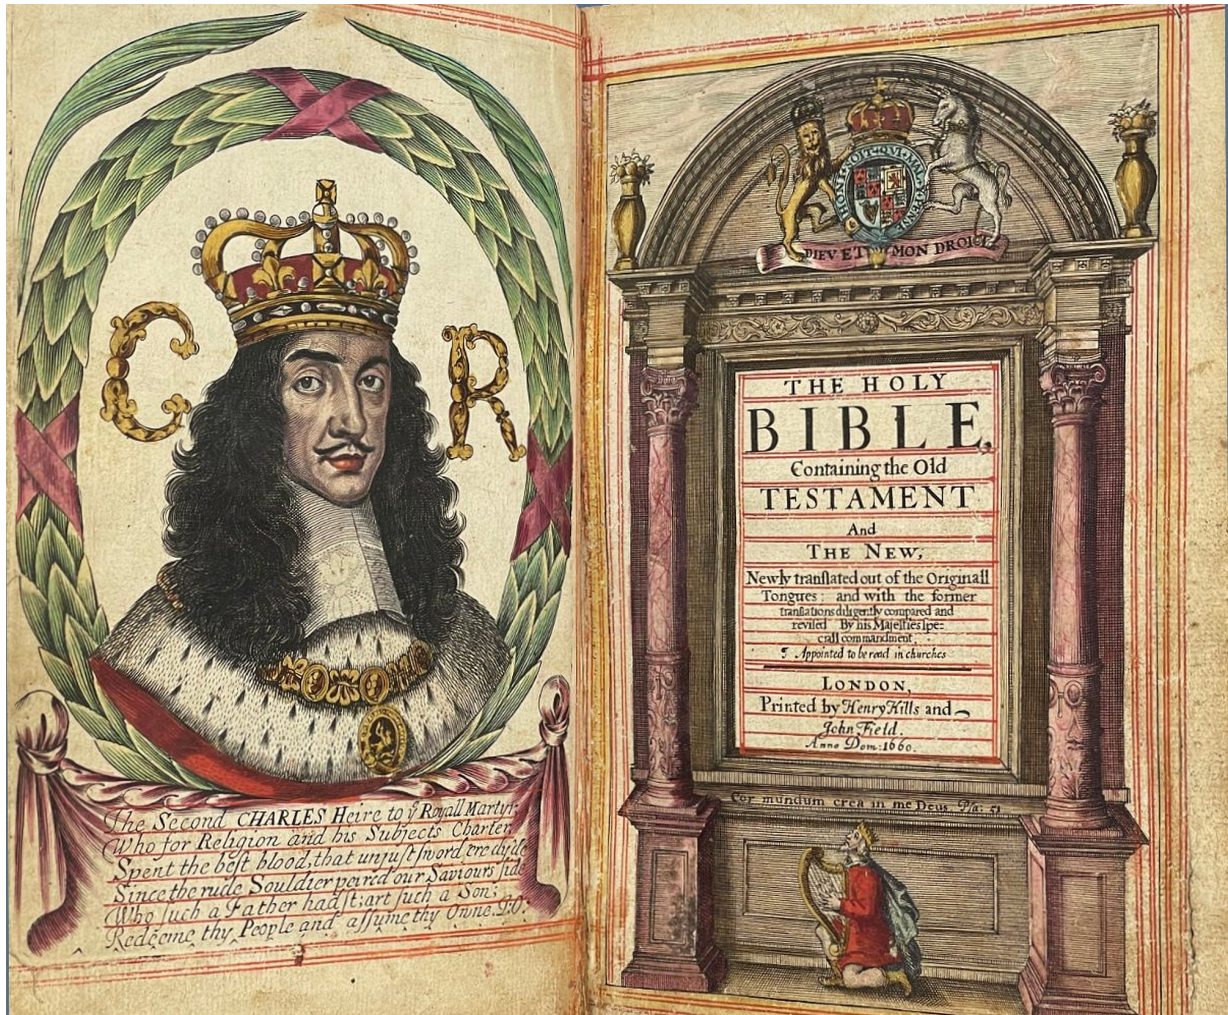 C R
The Second CHARLES Heire to yͤ Royall Martyr,
Who for Religion and his Subjects Charter,
Spent the best blood, that unjust sword ere dy'de
Since the rude Souldier peirced our Saviours side
Who such a Father had'st; art such a Son;
Redeeme thy People and assume thy Owne. P:O:
HONI·SOIT·QVI·MAL·Y·PENSE
DIEV ET MON DROICT
THE HOLY
BIBLE,
Containing the Old
TESTAMENT
And
THE NEW,
Newly translated out of the Originall
Tongues: and with the former
translations diligently compared and
revised By his Majesties spe=
ciall commandment
¶ Appointed to be read in churches
LONDON,
Printed by Henry Hills and
John Field.
Anno Dom: 1660.
Cor mundum crea in me Deus Psa: 51